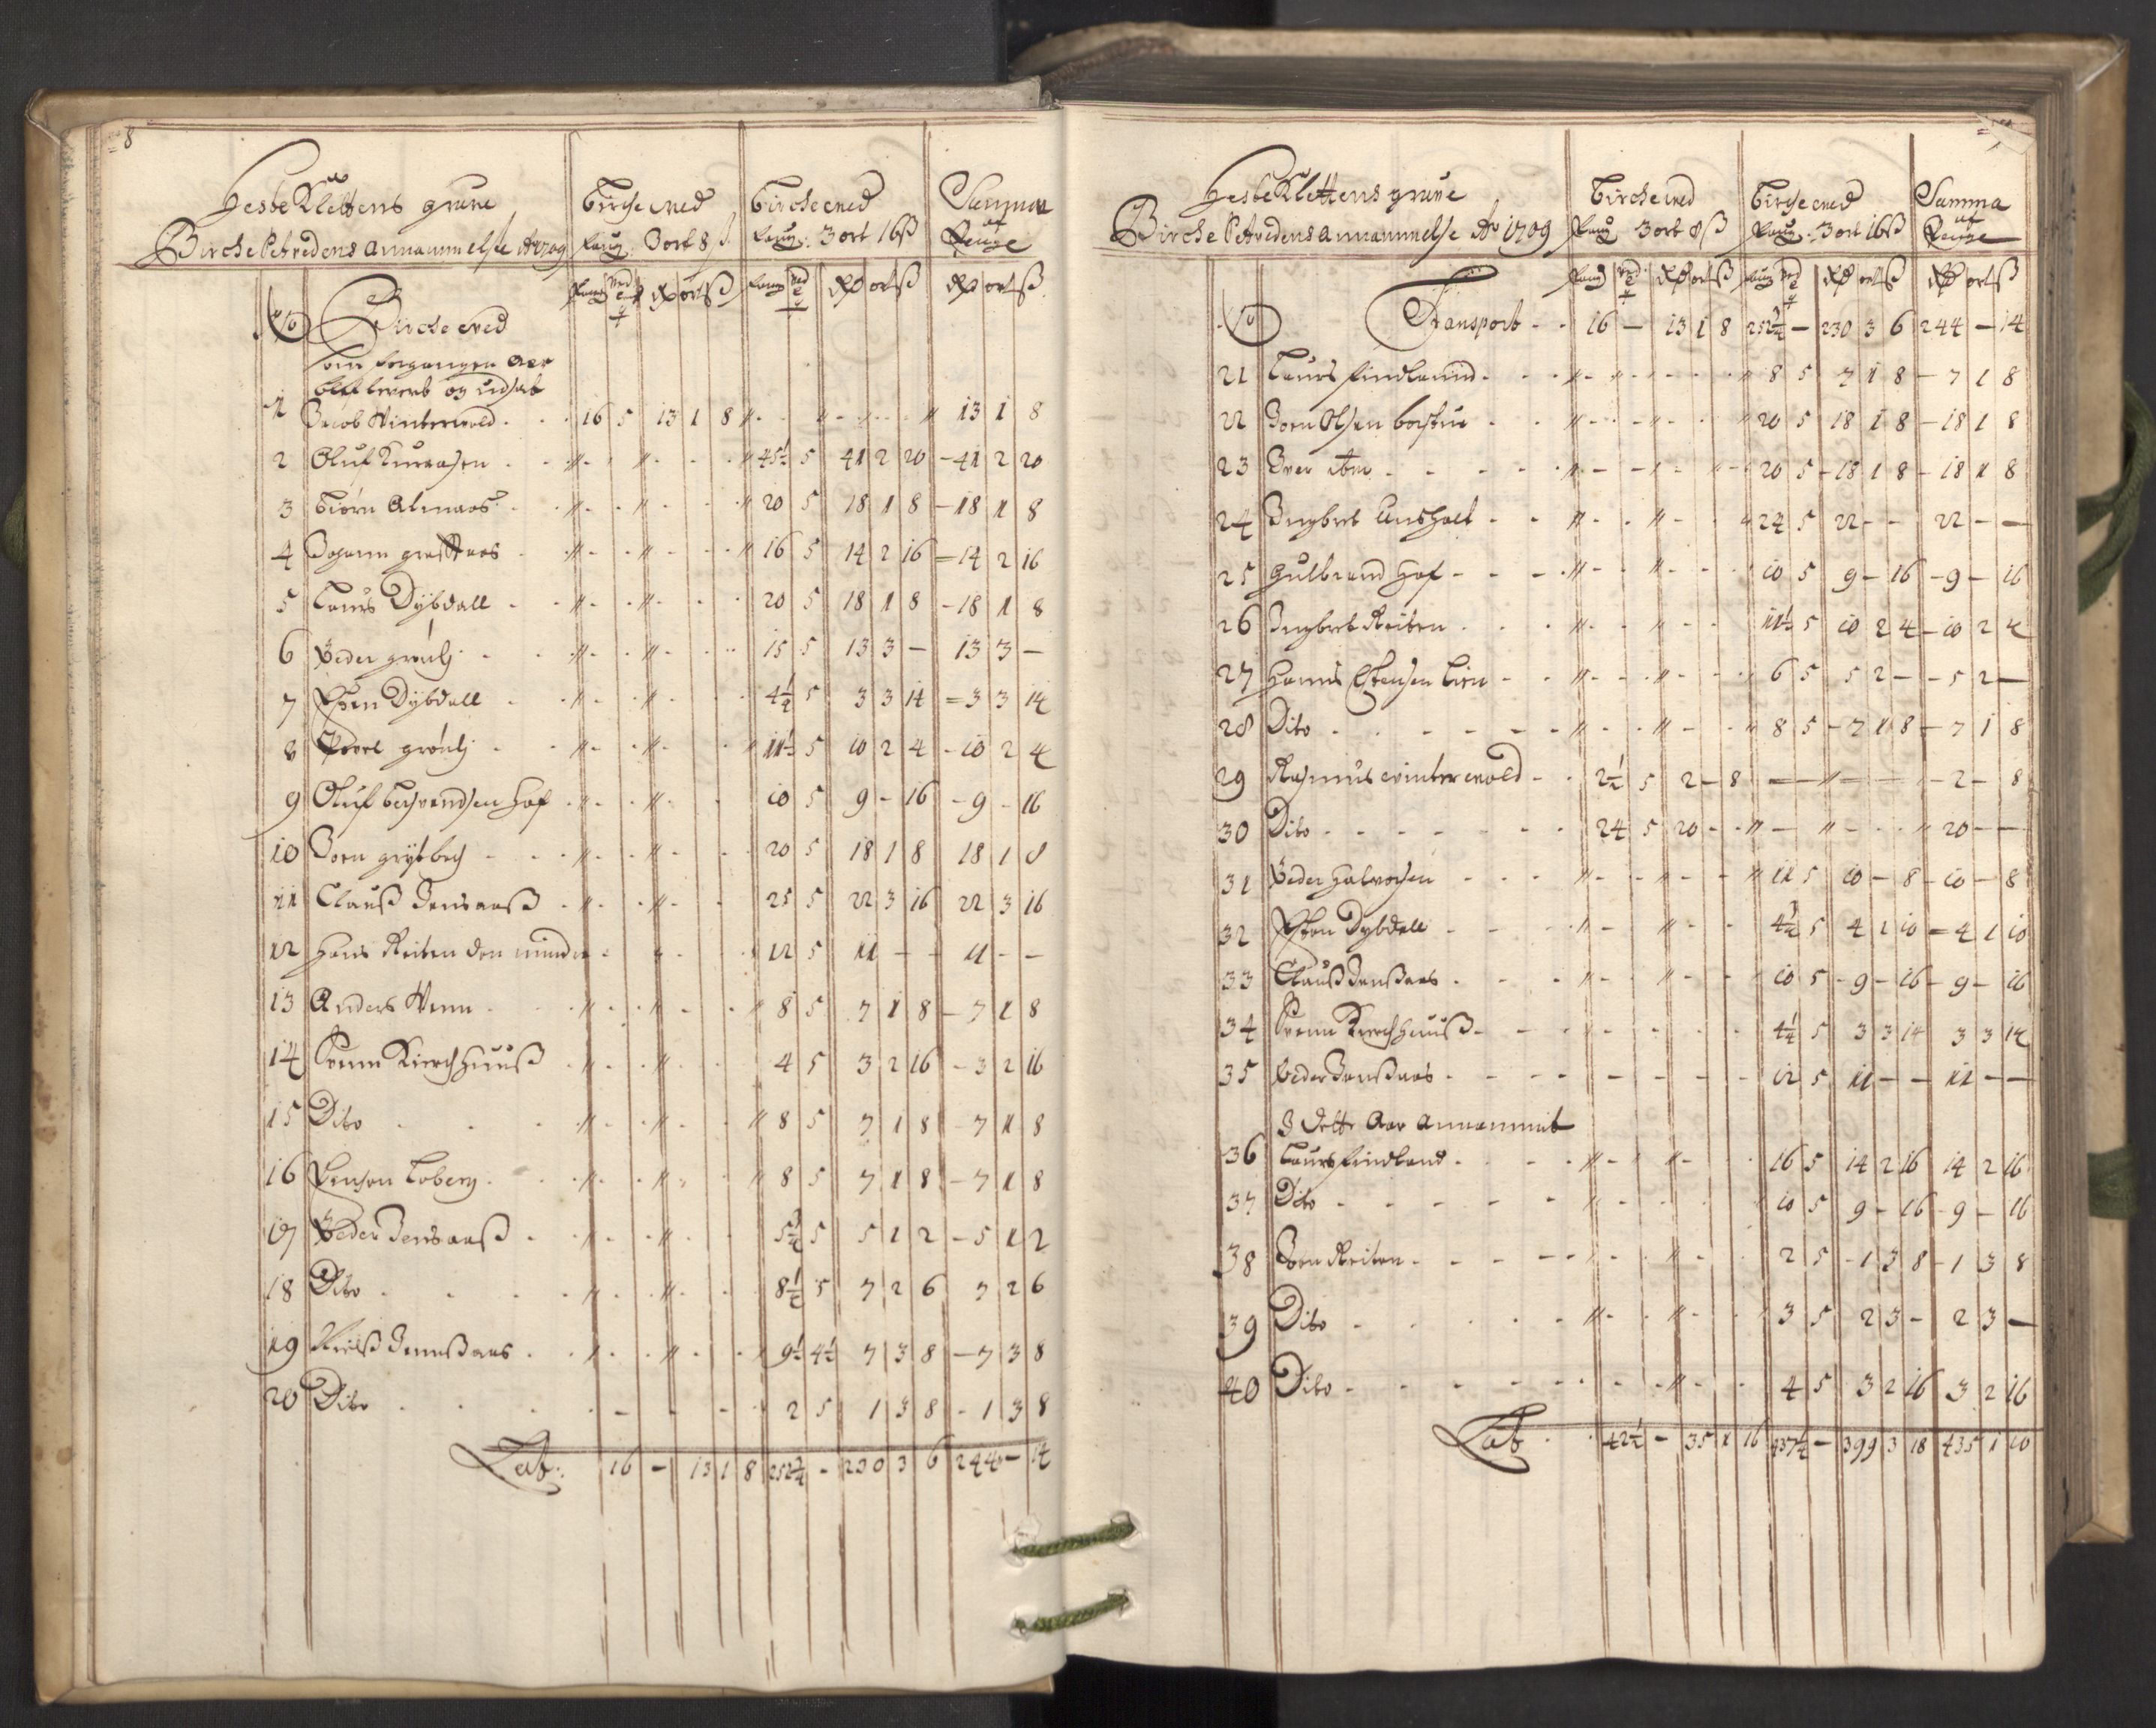 8
Hesteklettens grube
Birche Setvedens annammelse Ao 1709
Birche wed
faug: 3 ort 8 ß
Birche wed
faug: 3 ort 16 ß
Summa
af
Penge
No Birche wed
som forgangen Aar
bleff leveret og udsat
1 Jacob Winterwold 16 5 13 1 8 13 1 8
2 Oluf 45½ 5 41 2 20 41 2 20
3 Biørn Almaas 20 5 18 1 8 18 1 8
4 Johann 16 5 14 2 16 14 2 16
5 Laurs Dybdall 20 5 18 1 8 18 1 8
6 Peder grønli 15 5 13 3 – 13 3 –
7 Esten Dybdall 4¼ 5 3 3 14 3 3 14
8 Povel grønli 11½ 5 10 2 4 10 2 4
9 Oluf Hof 10 5 9 – 16 9 – 16
10 Joen grytbech 20 5 18 1 8 18 1 8
11 Clauß Jensaaß 25 5 22 3 16 22 3 16
12 Hans Reiten den mindre 12 5 11 – – 11 – –
13 Anders Wenn 8 5 7 1 8 7 1 8
14 Svenn Kierchhuuß 4 5 3 2 16 3 2 16
15 Dito 8 5 7 1 8 7 1 8
16 Loberg 8 5 7 1 8 7 1 8
17 Peder Jensaaß 5¾ 5 5 1 2 5 1 2
18 Dito 8½ 5 7 2 6 7 2 6
19 Nielß Jennßaas 9½ 4½ 7 3 8 7 3 8
20 Dito 2 5 1 3 8 1 3 8
Lat. 16 – 13 1 8 252¾ – 230 3 6 244 – 14
Hesteklettens grube
Birche Setvedens annammelse Ao 1709
Birche wed
faug 3 ort 8 ß
Birche wed
faug: 3 ort 16 ß
Summa
af
Penge
No Transport 16 – 13 1 8 252¾ – 230 3 6 244 – 14
21 Laurs findland 8 5 7 1 8 7 1 8
22 Joen Olsen 20 5 18 1 8 18 1 8
23 Iver 20 5 18 1 8 18 1 8
24 Ingbret Aasholt 24 5 22 – – 22 – –
25 Gulbrand Hof 10 5 9 – 16 9 – 16
26 Ingbret Reiten 11½ 5 10 2 4 10 2 4
27 Hanns Lien 6 5 5 2 – 5 2 –
28 Dito 8 5 7 1 8 7 1 8
29 Rasmus winterwold 2½ 5 2 – 8 2 – 8
30 Dito 24 5 20 – – 20 – –
31 Peder Halvorsen 11 5 10 – 8 10 – 8
32 Esten Dybdall 4¾ 5 4 1 10 4 1 10
33 Clauß Jenßaas 10 5 9 – 16 9 – 16
34 Svenn Kierchhuuß 4¼ 5 3 3 14 3 3 14
35 Peder Jenßaas 12 5 11 – – 11 – –
I dette Aar annammit
36 Laurs findland 16 5 14 2 16 14 2 16
37 Dito 10 5 9 – 16 9 – 16
38 Joen Reiten 2 5 1 3 8 1 3 8
39 Dito 3 5 2 3 – 2 3 –
40 Dito 4 5 3 2 16 3 2 16
Lat 42½ – 35 1 16 437¼ – 399 3 18 435 1 10